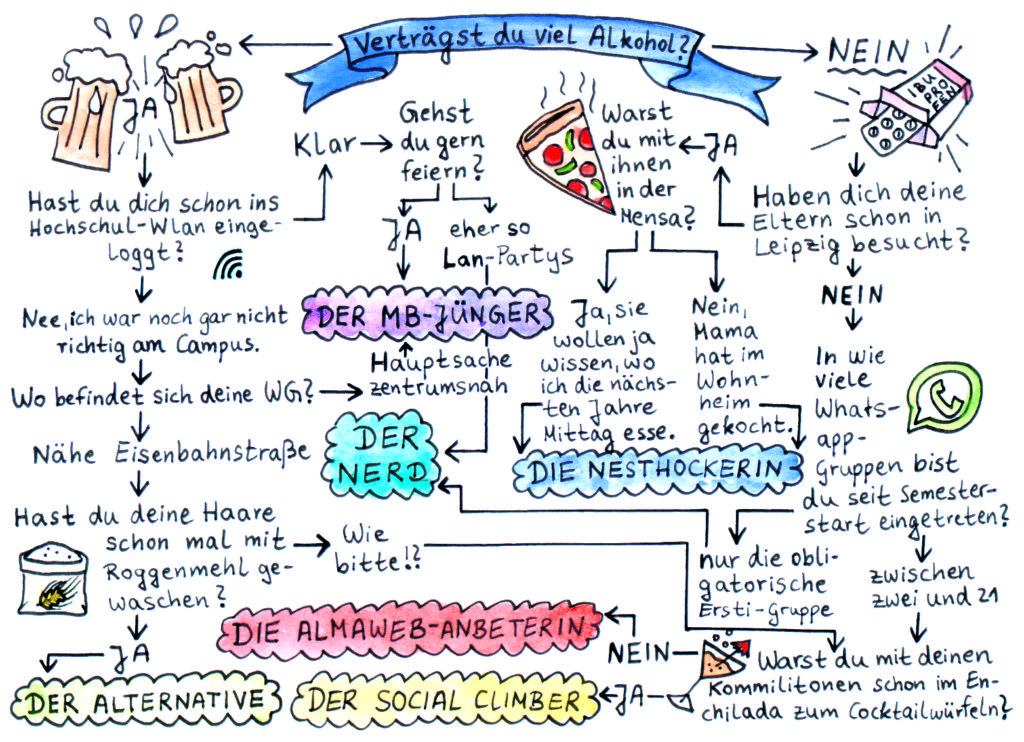 Verträgst du viel Alkohol?
JA
NEIN
IBU
PRO
FEN
Hast du dich schon ins
Hochschul-Wlan einge-
loggt?
Klar
Gehst
du gern
feiern?
JA
eher so
Lan-Partys
Nee, ich war noch gar nicht
richtig am Campus.
Wo befindet sich deine WG?
Hauptsache
zentrumsnah
DER MB-JÜNGER
DER
NERD
Nähe Eisenbahnstraße
Hast du deine Haare
schon mal mit
Roggenmehl ge-
waschen?
Wie
bitte!?
JA
DER ALTERNATIVE
Haben dich deine
Eltern schon in
Leipzig besucht?
JA
Warst
du mit
ihnen
in der
Mensa?
Ja, sie
wollen ja
wissen, wo
ich die nächs-
ten Jahre
Mittag esse.
Nein,
Mama
hat im
Wohn-
heim
gekocht.
DIE NESTHOCKERIN
NEIN
In wie
viele
Whats-
app-
Gruppen bist
du seit Semester-
start eingetreten?
nur die obli-
gatorische
Ersti-Gruppe
zwischen
zwei und 21
Warst du mit deinen
Kommilitonen schon im En-
chilada zum Cocktailwürfeln?
NEIN
DIE ALMAWEB-ANBETERIN
JA
DER SOCIAL CLIMBER